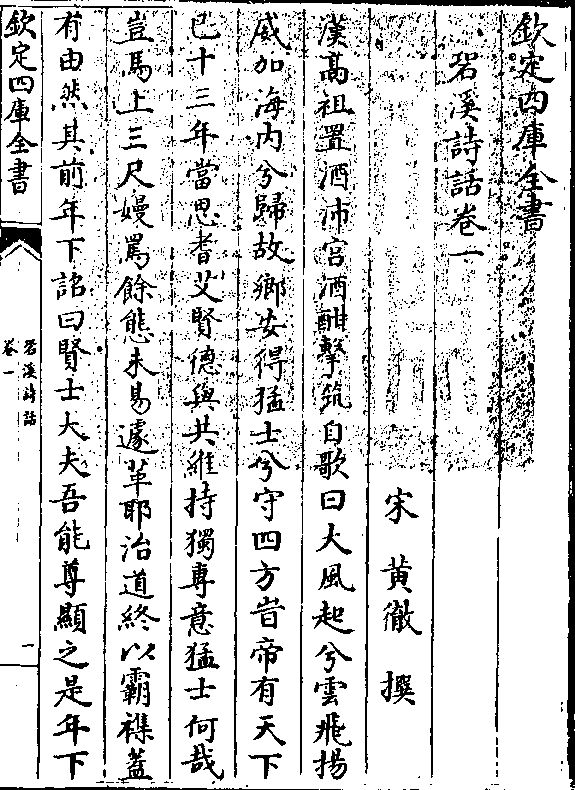 欽定四庫全書
䂬溪詩話卷一
宋 黃徹 撰
漢高祖置酒沛宫酒酣擊筑自歌曰大風起兮雲飛揚
威加海内兮歸故鄉安得猛士兮守四方昔帝有天下
已十三年當思耆艾賢德與共維持獨專意猛士何哉
豈馬上三尺嫚罵餘態未易遽革耶治道終以霸襍蓋
有由然其前年下詔曰賢士大夫吾能尊顯之是年下
欽定四庫全書
䂬溪詩話
卷一
一